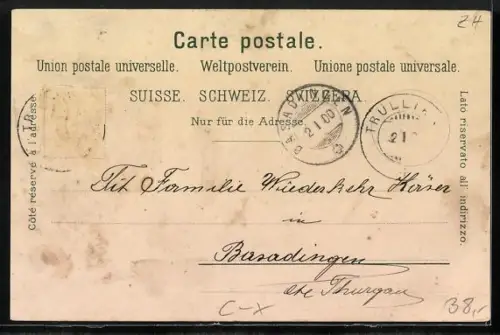 24
Carte postale.
Union postale universelle. Weltpostverein. Unione postale universale.
SUISSE. SCHWEIZ. SVIZZERA.
Nur für die Adresse.
Côté réservé à l'adresse.
Lato riservato all' indirizzo.
BASADINGEN
2 I 00
TRULLI
2 I
TR
Tit Familie Wiederkehr
in
Basadingen
Cte Thurgau
C-X
38,-